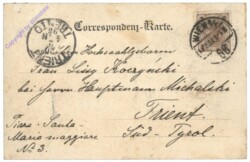 Correspondenz-Karte.
Hochwohlgeboren
Frau Lissy Koczyński
bei Herrn Hauptmann Michalski
Trient
Süd-Tyrol.
Piazza Santa
Maria maggiore
No 3.
TRIENT
TRENTO
WIEN